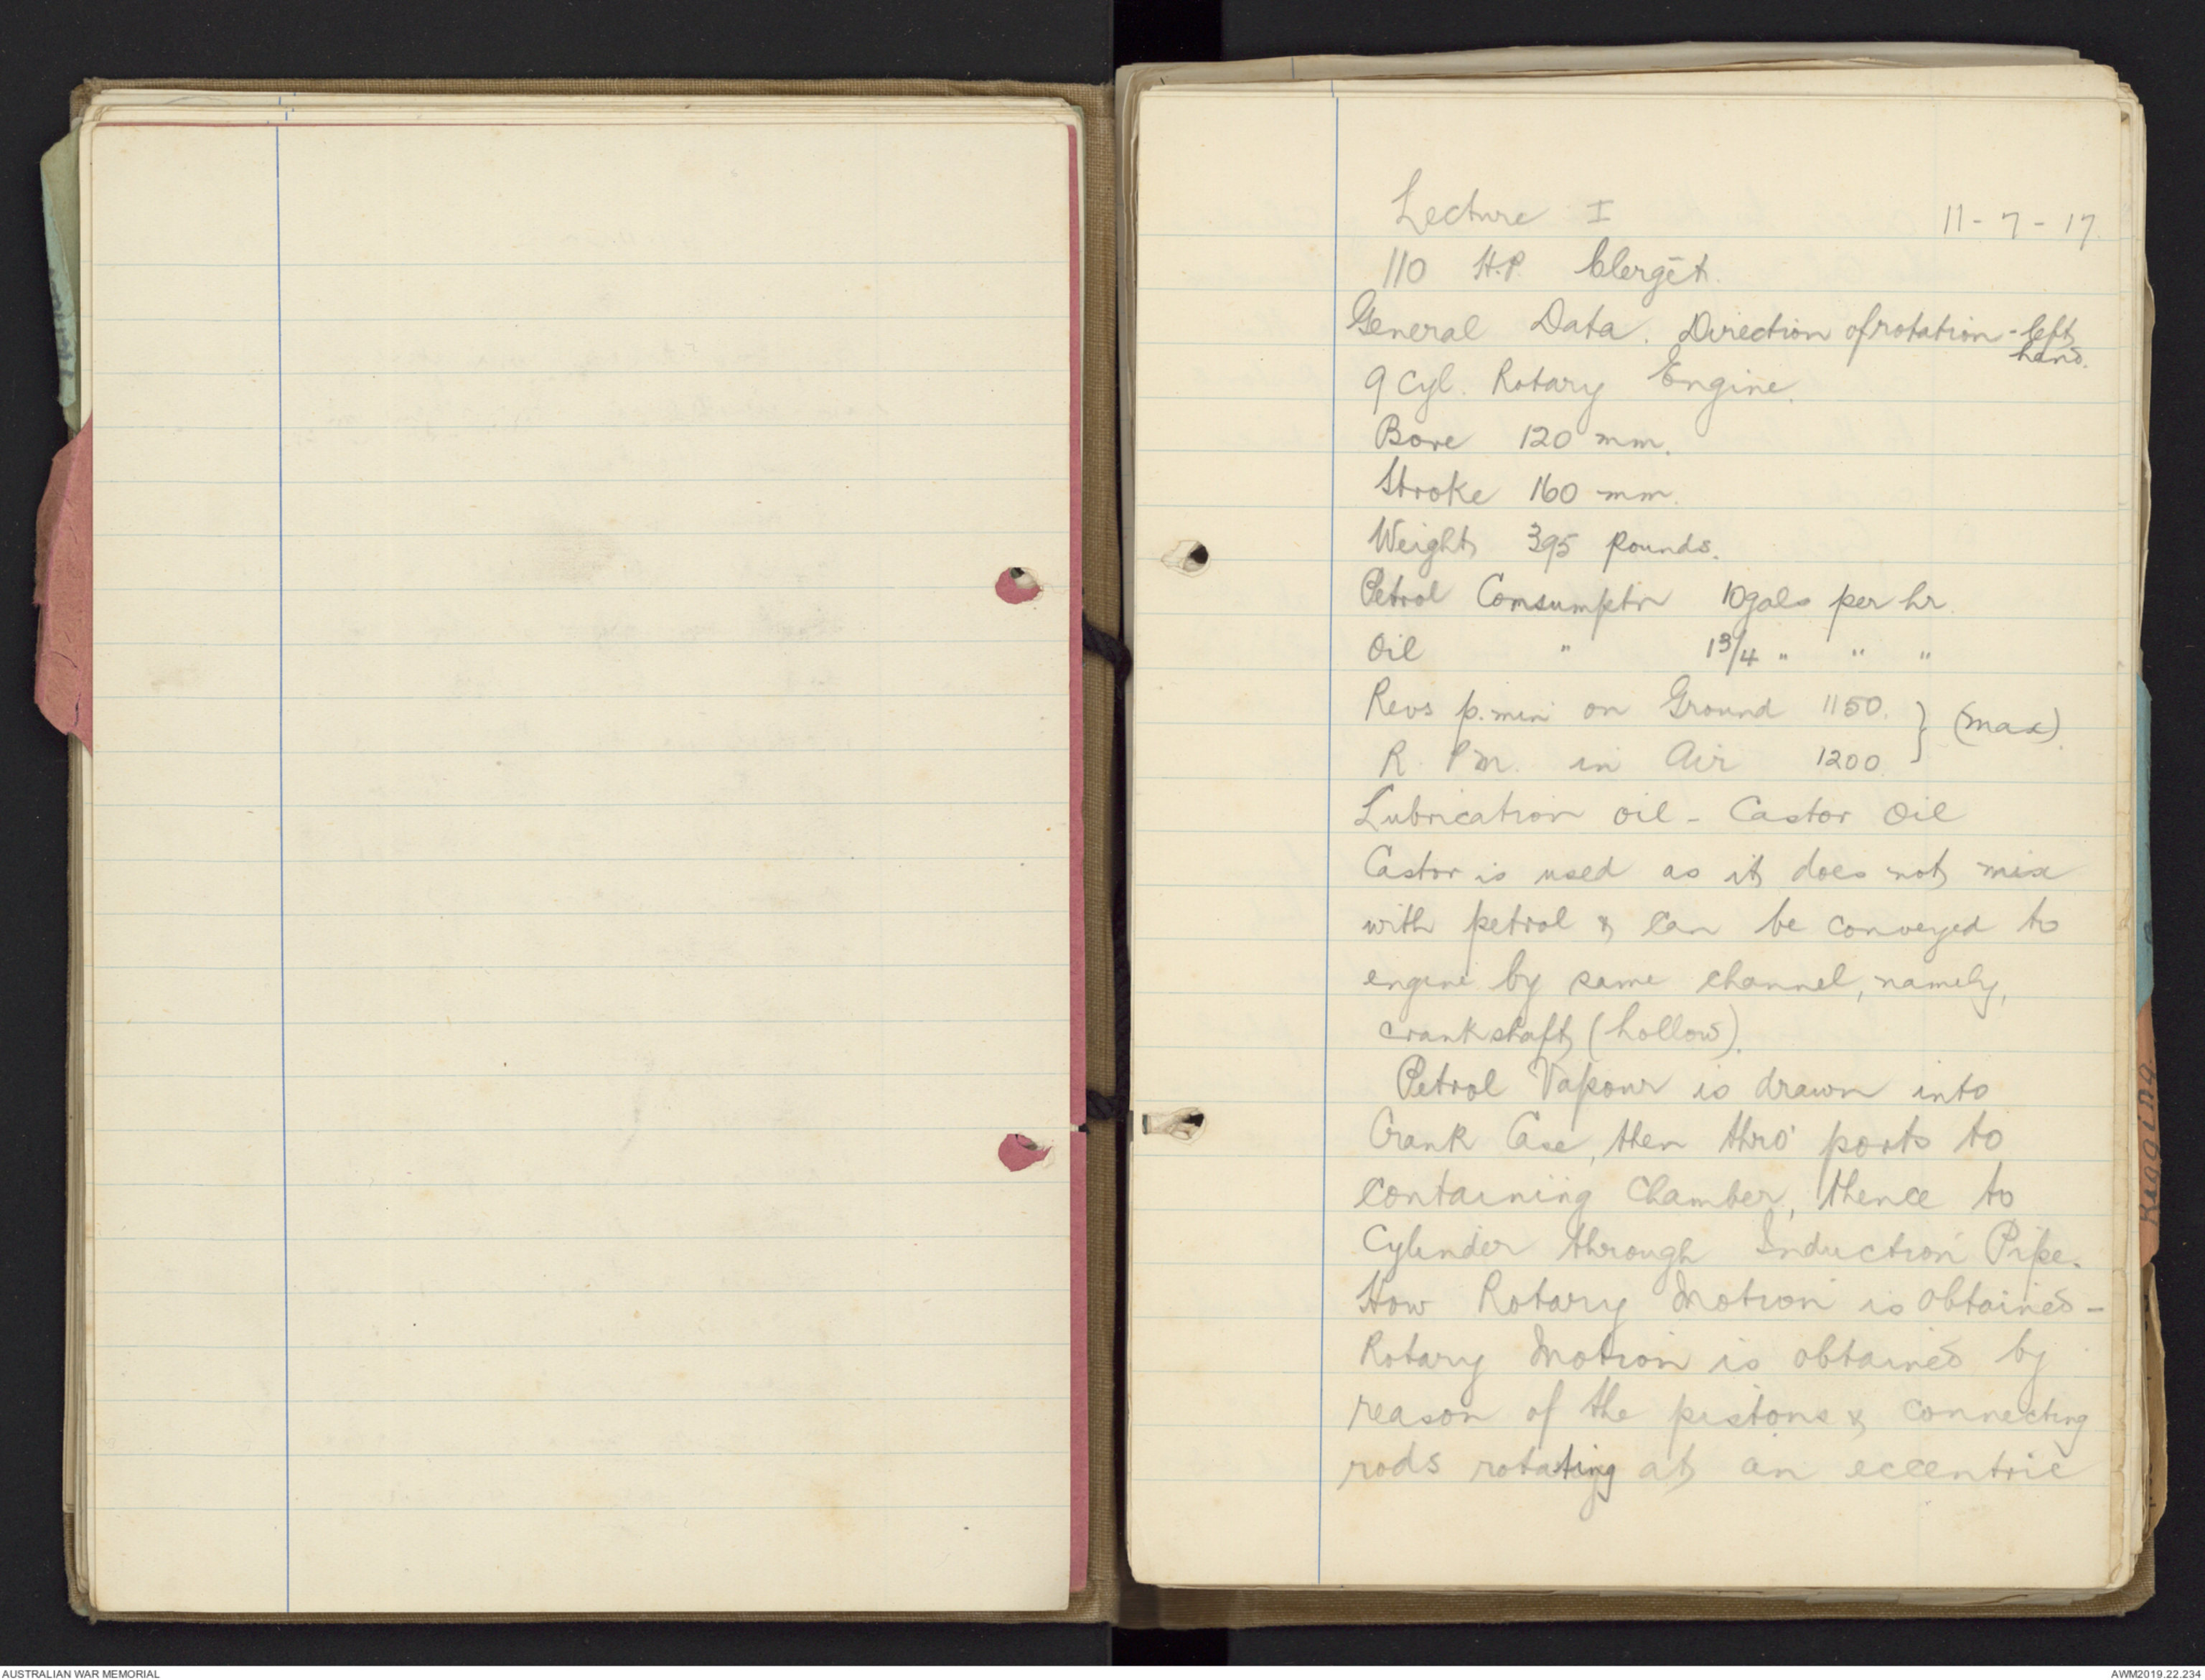 Lecture I 11-7-17.
110 H.P. Clergêt.
General Data. Direction of rotation - left
hand.
9 Cyl. Rotary Engine.
Bore 120 mm.
Stroke 160 mm.
Weight 395 pounds.
Petrol Consumptn 10 gals per hr.
Oil " 1 3/4 " " "
Revs p. min on Ground 1150. } (max).
R. P m. in Air 1200.
Lubrication oil - Castor Oil
Castor is used as it does not mix
with petrol & can be conveyed to
engine by same channel, namely,
crankshaft (hollow).
Petrol Vapour is drawn into
Crank Case, then thro' ports to
containing chamber, thence to
Cylinder through Induction Pipe.
How Rotary Motion is obtained -
Rotary Motion is obtained by
reason of the pistons & connecting
rods rotating at an eccentric
Rigging
AUSTRALIAN WAR MEMORIAL
AWM2019.22.234